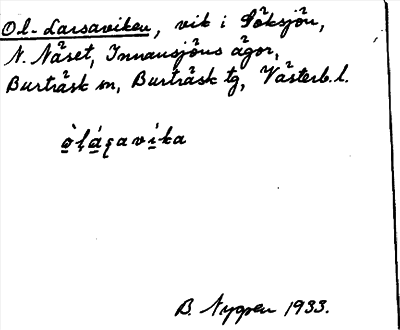 Ol-Larsaviken, vik i Söksjön,
N. Näset, Innansjöns ägor,
Burträsk sn, Burträsk tg, Västerb. l.
B. Nygren 1933.